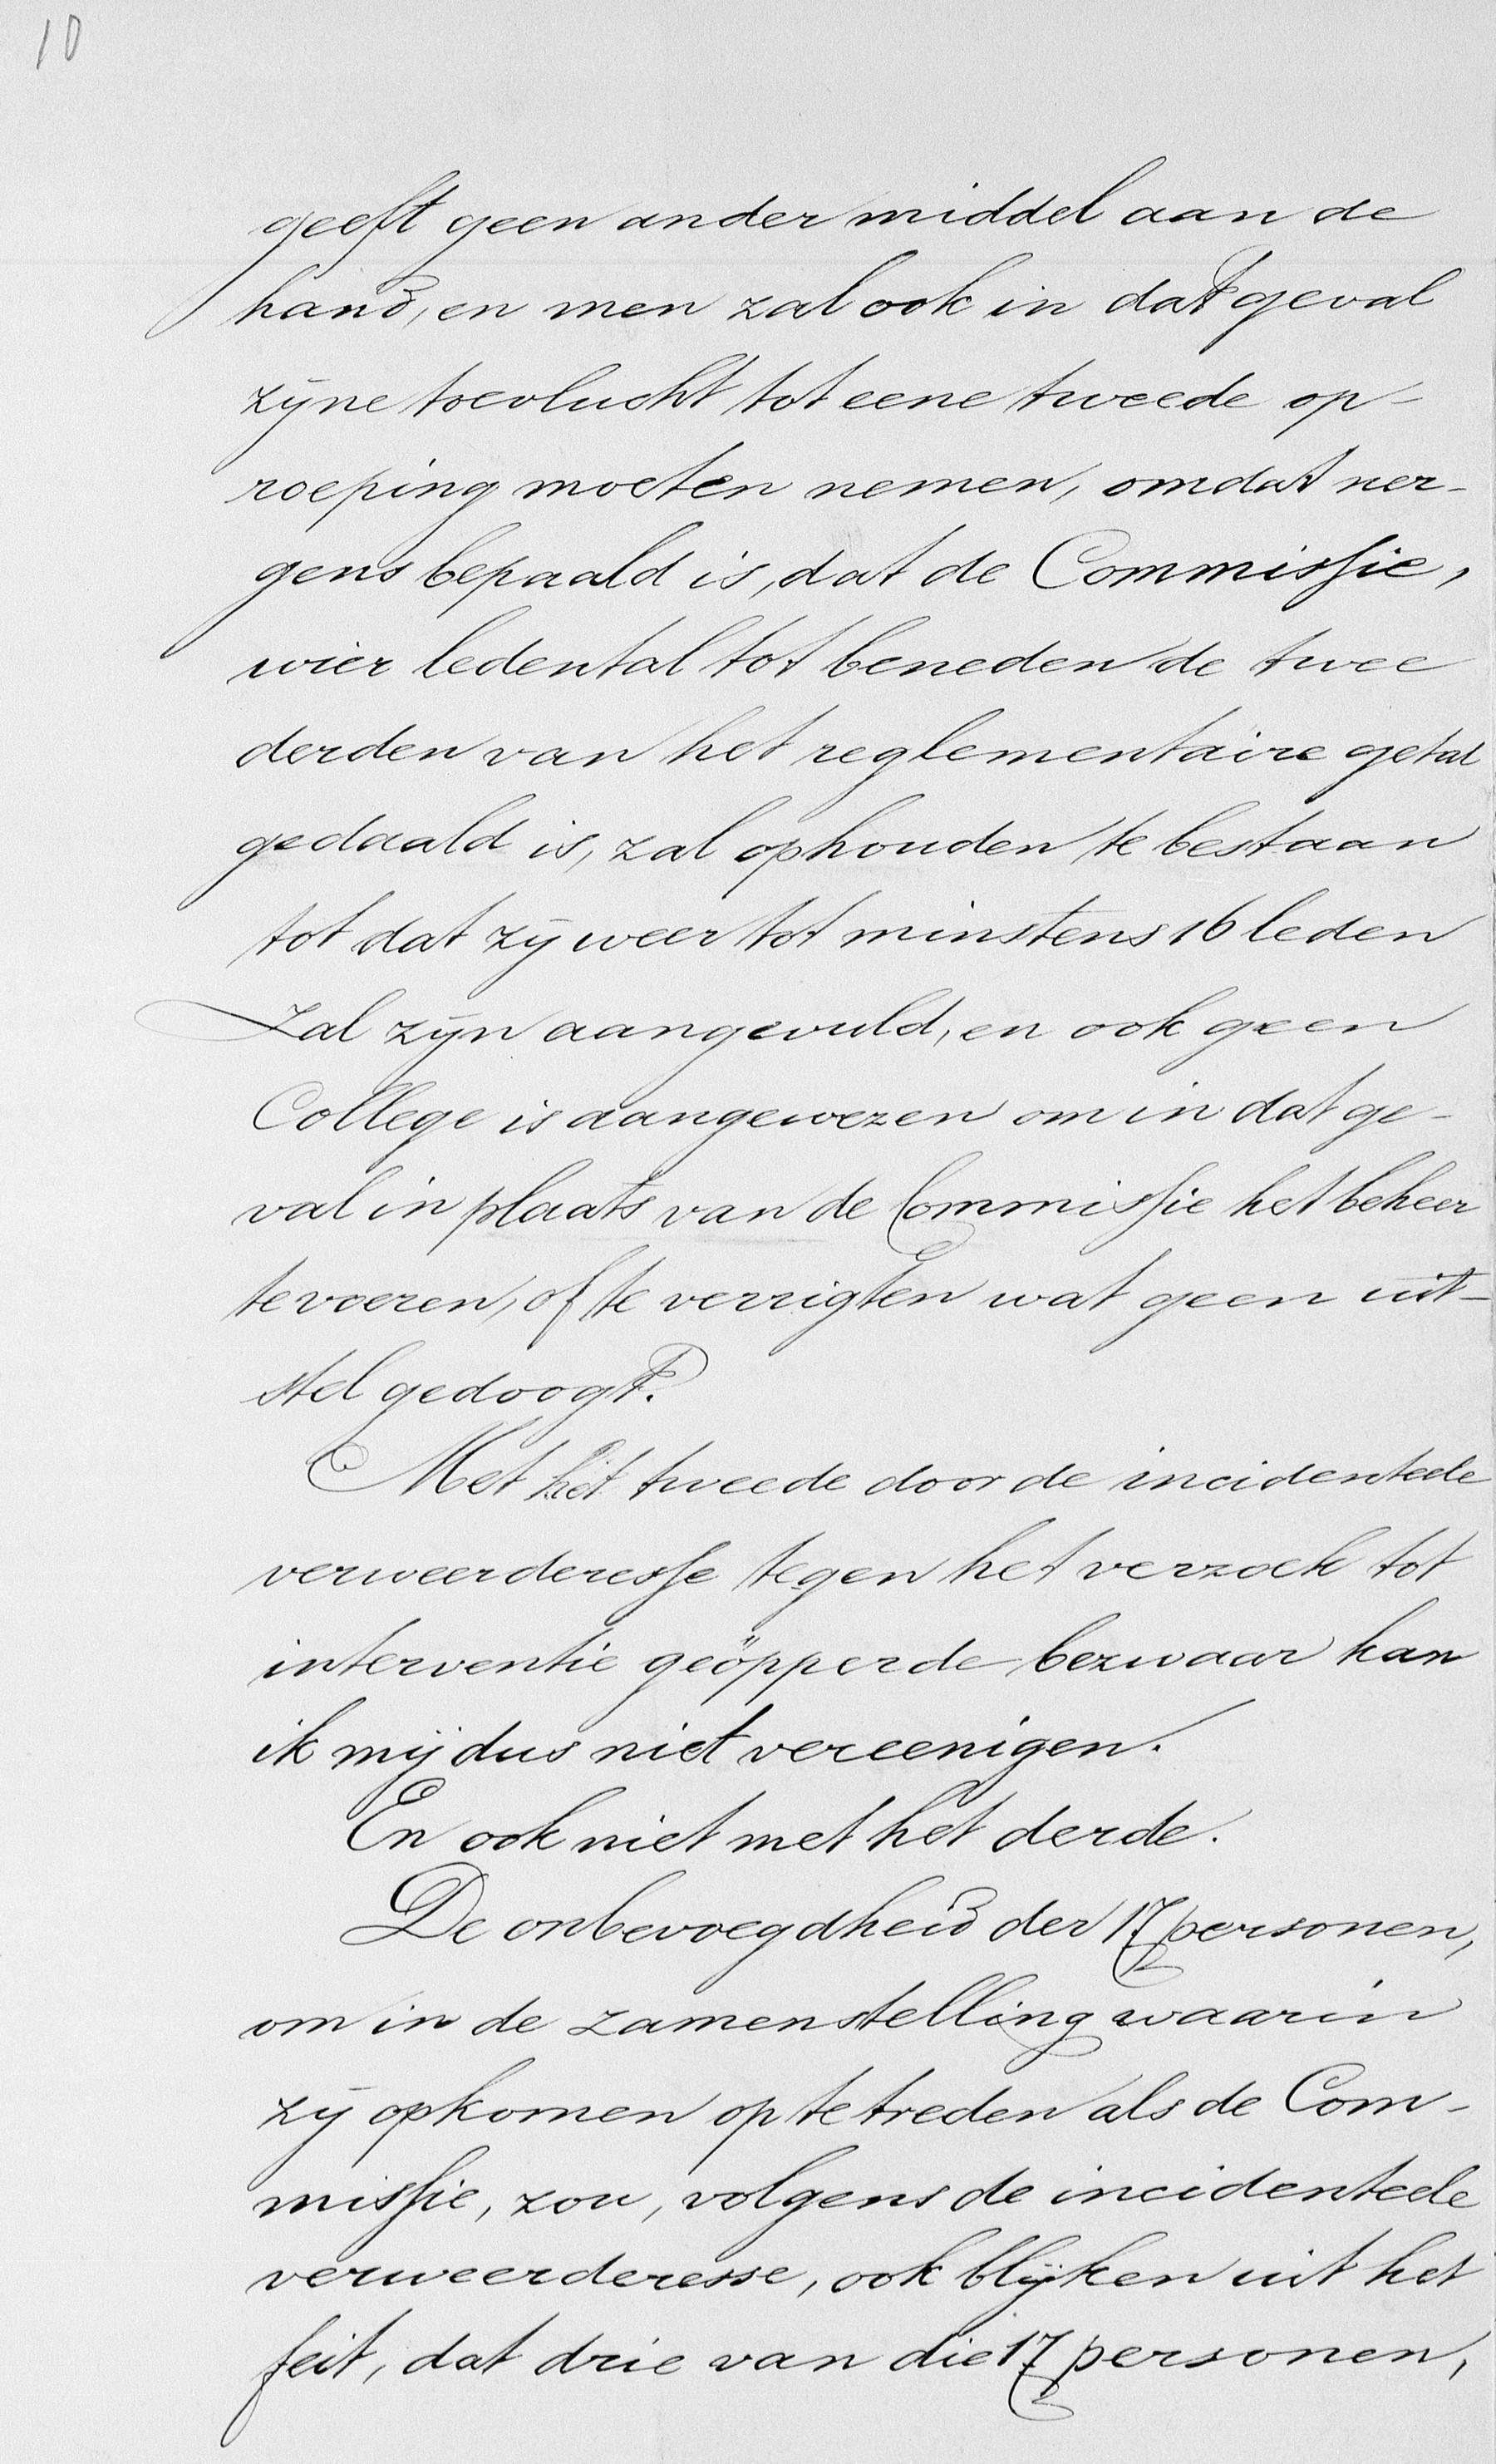 10
geeft geen ander middel aan de
hand, en men zal ook in dat geval
zijne toevlucht tot eene tweede op-
roeping moeten nemen, omdat ner-
gens bepaald is, dat de Commissie,
wier ledental tot beneden de twee
derden van het reglementaire getal
gedaald is, zal ophouden te bestaan
tot dat zij weer tot minstens 16 leden
zal zijn aangevuld, en ook geen
College is aangewezen om in dat ge-
val in plaats van de Commissie het beheer
te voeren, of te verrigten wat geen uit-
stel gedoogt.
Met het tweede door de incidenteele
verweerderesse tegen het verzoek tot
interventie geöpperde bezwaar kan
ik mij dus niet vereenigen.
En ook niet met het derde.
De onbevoegdheid der 17 personen,
om in de zamenstelling waarin
zij opkomen op te treden als de Com-
missie, zou, volgens de incidenteele
verweerderesse, ook blijken uit het
feit, dat drie van die 17 personen,